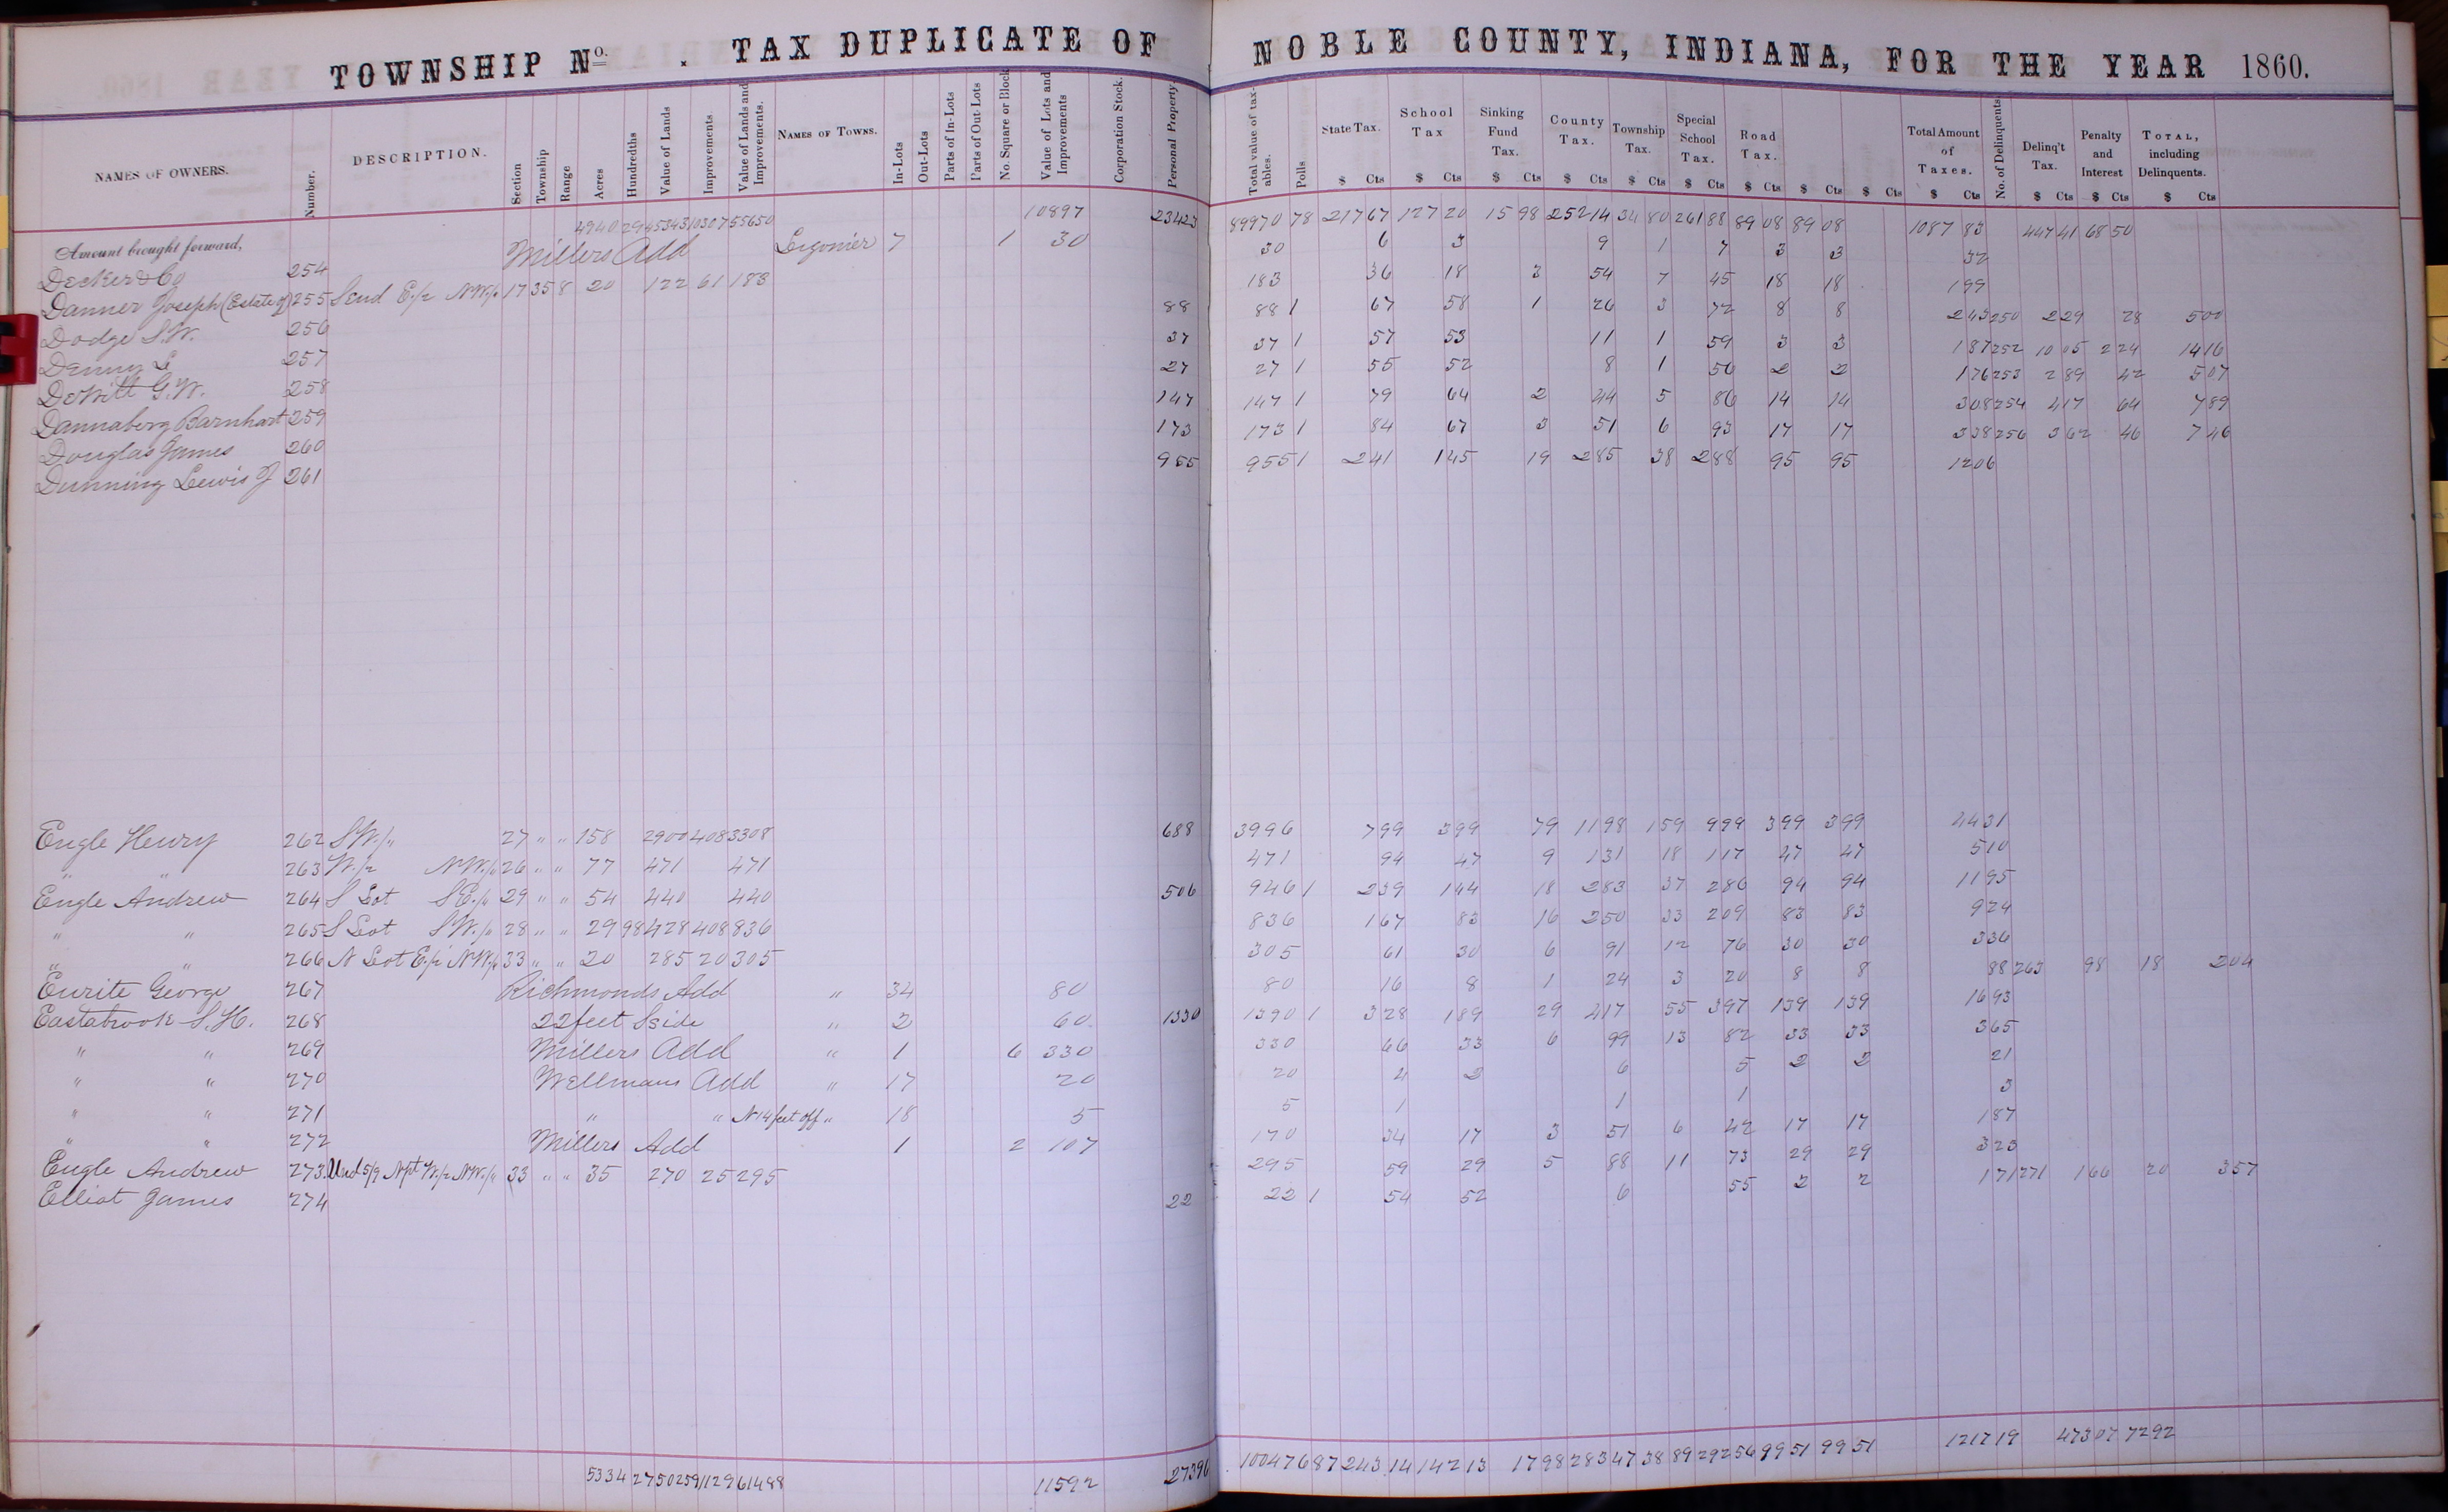 TOWNSHIP No. . TAX DUPLICATE OF NOBLE COUNTY, INDIANA, FOR THE YEAR 1860.
NAMES OF OWNERS. Number. DESCRIPTION. Section Township Range Acres Hundredths Value of Lands Improvements Value of Lands and Improvements. NAMES OF TOWNS. In-Lots Out-Lots Parts of In-Lots Parts of Out-Lots No. Square or Block Value of Lots and Improvements Corporation Stock. Personal Property Total value of taxables. Polls State Tax. School Tax Sinking Fund Tax. County Tax. Township Tax. Special School Tax. Road Tax. Total Amount of Taxes. No. of Delinquents Delinq't Tax. Penalty and Interest TOTAL, including Delinquents.
$ Cts $ Cts $ Cts $ Cts $ Cts $ Cts $ Cts $ Cts $ Cts $ Cts $ Cts $ Cts $ Cts
Amount brought forward, 4940 29 45343 10307 55650 10897 23423 89970 78 217 67 127 20 15 98 252 14 34 80 261 88 89 08 89 08 1087 83 447 41 68 50
Decker & Co 254 Millers Add Ligonier 7 1 30 30 6 3 9 1 7 3 3 32
Danner Joseph (Estate of) 255 S End E 1/2 NW 1/4 17 35 8 20 122 61 183 183 36 18 3 54 7 45 18 18 199
Dodge S.W. 256 88 88 1 67 58 1 26 3 72 8 8 243 250 2 29 28 500
Denny L 257 37 37 1 57 53 11 1 59 3 3 187 252 10 05 2 24 1416
DeWitt G.W. 258 27 27 1 55 52 8 1 56 2 2 176 253 2 89 42 507
Dannaberg Barnhart 259 147 147 1 79 64 2 44 5 86 14 14 308 254 417 64 789
Douglas James 260 173 173 1 84 67 3 51 6 93 17 17 338 256 362 46 746
Dunning Lewis J 261 955 955 1 241 145 19 285 38 288 95 95 1206
Engle Henry 262 SW 1/4 27 " " 158 2900 408 3308 688 3996 799 399 79 1198 159 999 399 399 4431
" " 263 W 1/2 NW 1/4 26 " " 77 471 471 471 94 47 9 131 18 117 47 47 510
Engle Andrew 264 S Lot SE 1/4 29 " " 54 440 440 506 946 1 239 144 18 283 37 286 94 94 1195
" " 265 S Lot SW 1/4 28 " " 29 98 428 408 836 836 167 83 16 250 33 209 83 83 924
" " 266 N Lot E 1/2 NW 1/4 33 " " 20 285 20 305 305 61 30 6 91 12 76 30 30 336
Enrite George 267 Richmonds Add " 34 80 80 16 8 1 24 3 20 8 8 88 263 98 18 204
Eastabrook S.H. 268 22 feet S side " 2 60 1330 1390 1 328 189 29 417 55 397 139 139 1693
" " 269 Millers Add " 1 6 330 330 66 33 6 99 13 82 33 33 365
" " 270 Wellmans Add " 17 20 20 4 2 6 5 2 2 21
" " 271 " " N 14 feet off " 18 5 5 1 1 1 3
" " 272 Millers Add 1 2 107 170 34 17 3 51 6 42 17 17 187
Engle Andrew 273 Und 5/9 N pt W 1/2 NW 1/4 33 " " 35 270 25 295 295 59 29 5 88 11 73 29 29 323
Elliot James 274 22 22 1 54 52 6 55 2 2 171 271 166 20 357
5334 27 50259 11229 61488 11592 27396 100476 87 243 14 142 13 17 98 283 47 38 89 292 56 99 51 99 51 1217 19 473 07 72 92